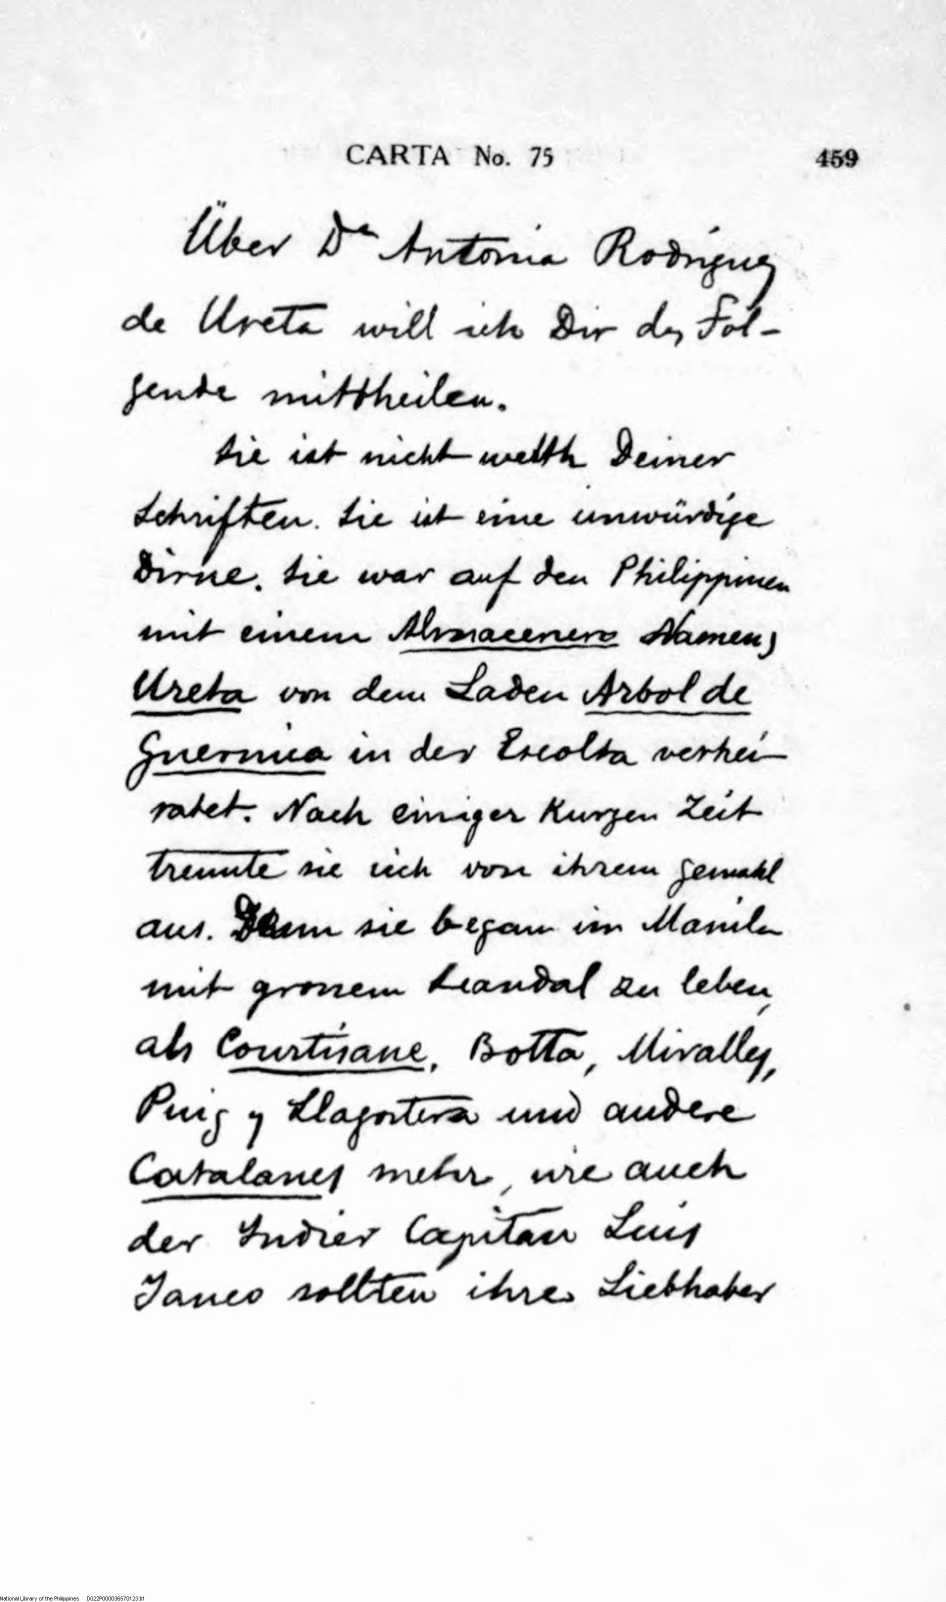 CARTA No. 75 459
Über Dª Antonia Rodríguez
de Ureta will ich Dir das Fol-
gende mittheilen.
Sie ist nicht werth Deiner
Schriften. Sie ist eine unwürdige
Dirne. Sie war auf den Philippinen
mit einem Almacenero Namens
Ureta von dem Laden Arbol de
Guernica in der Escolta verhei-
ratet. Nach einiger kurzen Zeit
trennte sie sich von ihrem Gemahl
aus. Denn sie began im Manila
mit grossem Scandal zu leben,
als Courtisane, Botta, Miralles,
Puig y Llagostera und andere
Catalanes mehr, wie auch
der Indier Capitan Luis
Yanco sollten ihre Liebhaber
National Library of the Philippines